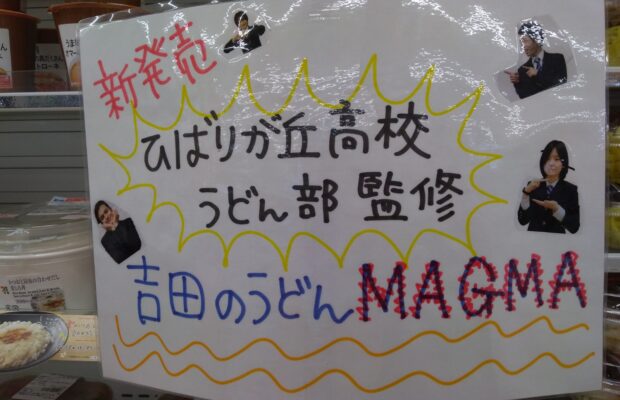 新発売
ひばりが丘高校
うどん部監修
吉田のうどんMAGMA